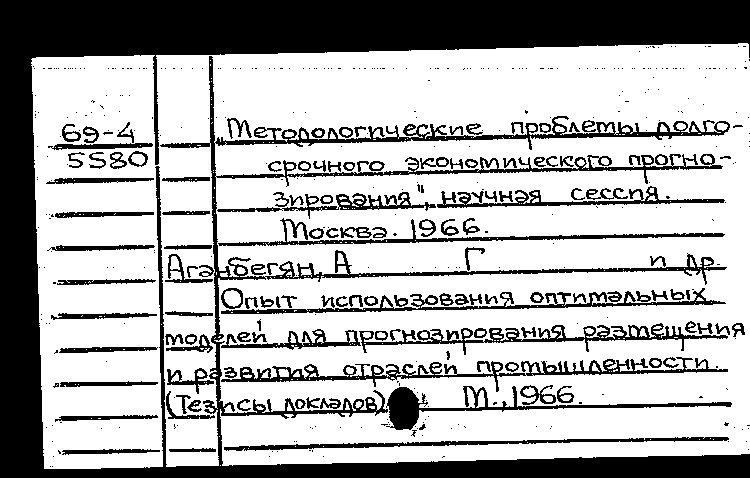 69-4
5580
„Методологические проблемы долго-
срочного экономического прогно-
зирования", научная сессия.
Москва. 1966.
Аганбегян, А Г и др
Опыт использования оптимальных
моделей для прогнозирования размещения
и развития отраслей промышленности.
(Тезисы докладов) М., 1966.